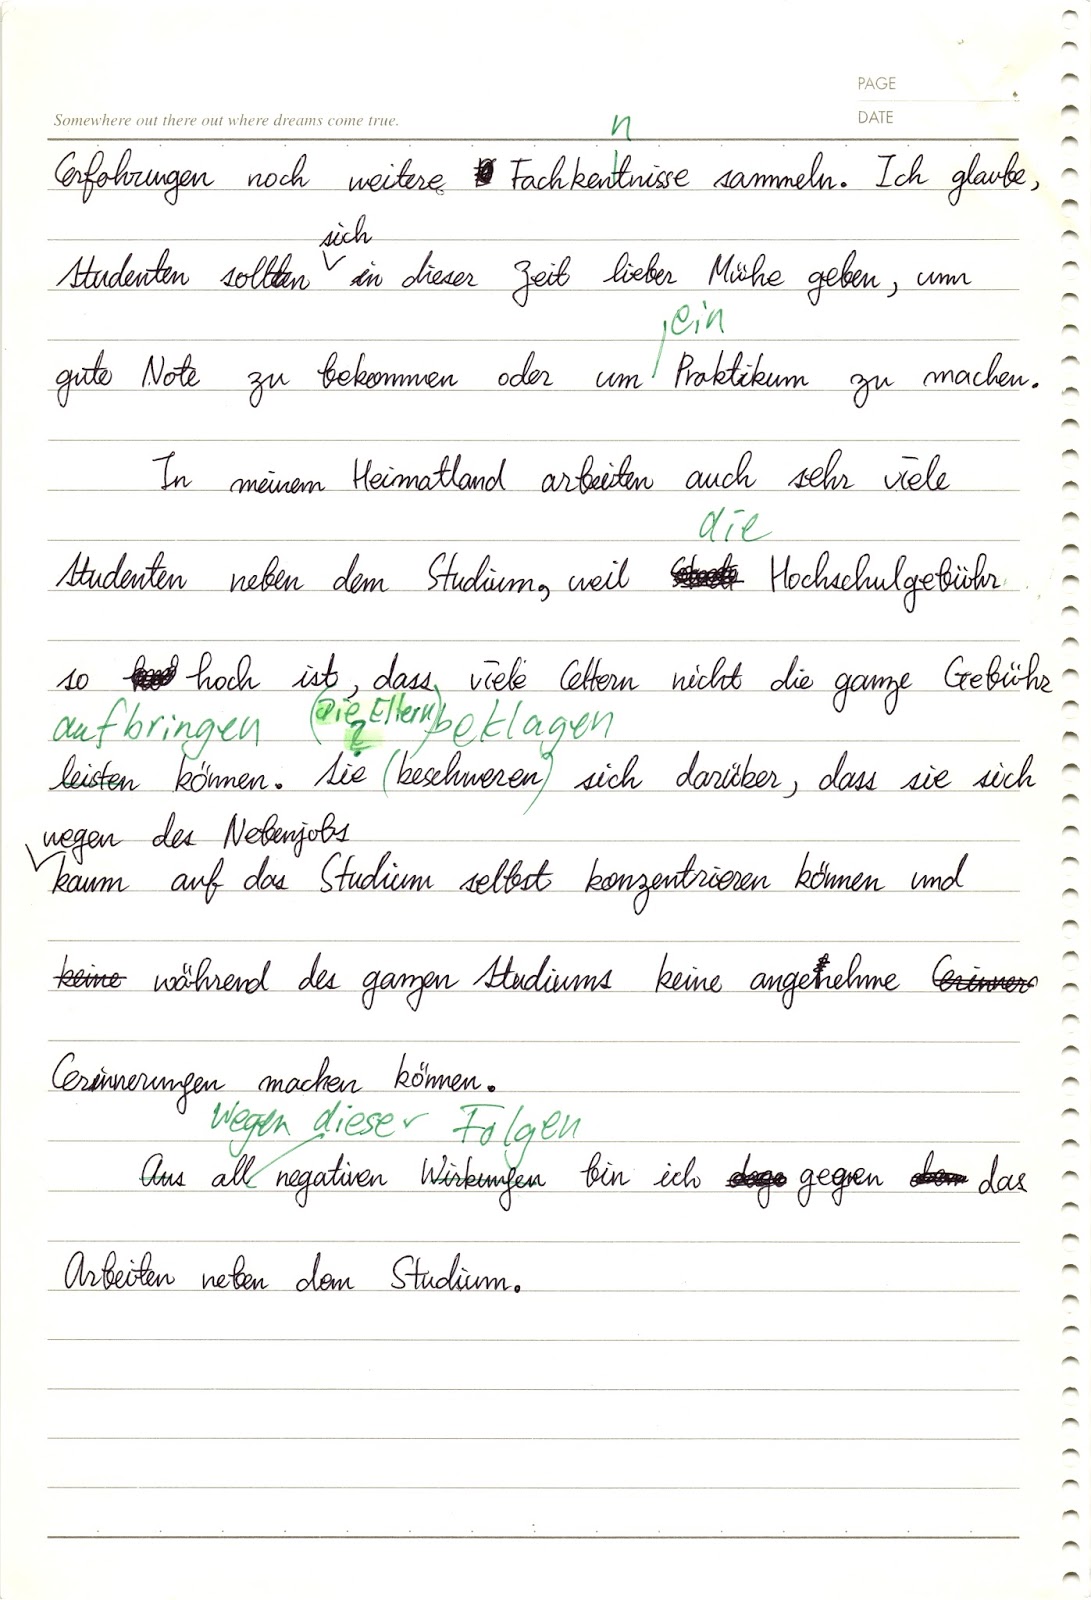 PAGE
Somewhere out there out where dreams come true.
DATE
n
Erfahrungen noch weitere Fachkentnisse sammeln. Ich glaube,
sich
Studenten sollten in dieser Zeit lieber Mühe geben, um
ein
gute Note zu bekommen oder um Praktikum zu machen.
In meinem Heimatland arbeiten auch sehr viele
die
Studenten neben dem Studium, weil Hochschulgebühr
so hoch ist, dass viele Eltern nicht die ganze Gebühr
aufbringen (Die Eltern) beklagen
?
leisten können. Sie (beschweren) sich darüber, dass sie sich
wegen des Nebenjobs
kaum auf das Studium selbst konzentrieren können und
keine während des ganzen Studiums keine angenehme Erinner
Erinnerungen machen können.
Wegen dieser Folgen
Aus all negativen Wirkungen bin ich gegen das
Arbeiten neben dem Studium.